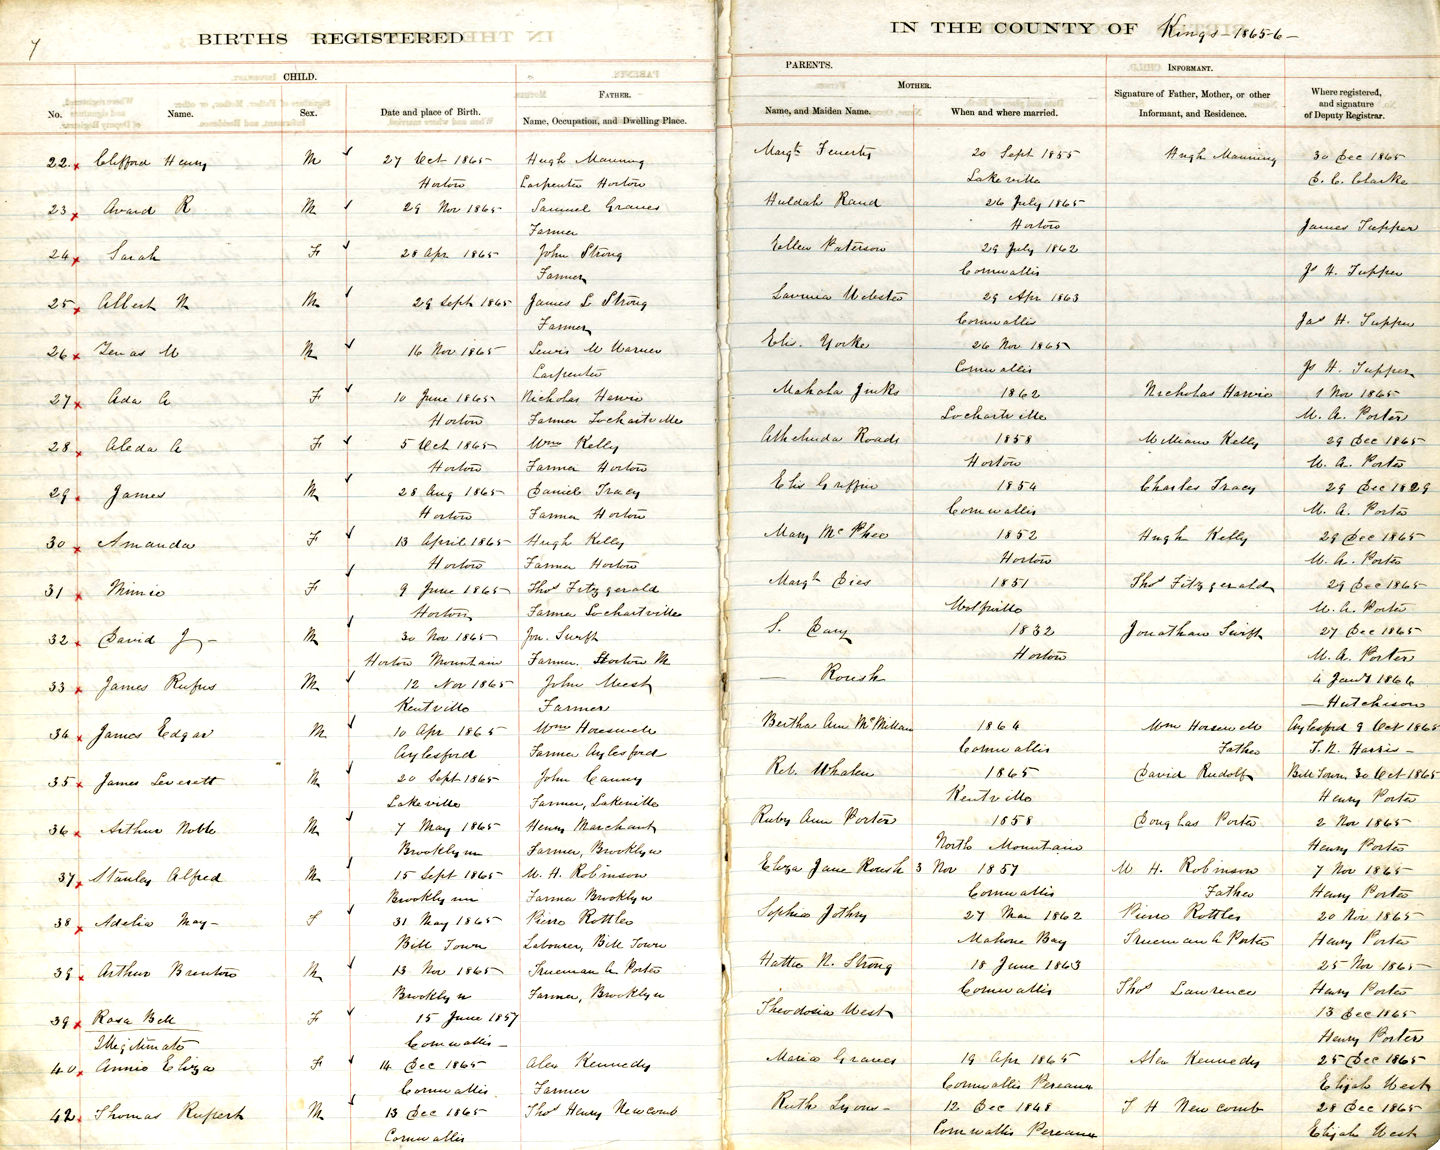 7
BIRTHS REGISTERED IN THE COUNTY OF Kings - 1865-6 -
CHILD. PARENTS. INFORMANT.
FATHER. MOTHER.
No. Name. Sex. Date and place of Birth. Name, Occupation, and Dwelling Place. Name, and Maiden Name. When and where married. Signature of Father, Mother, or other Informant, and Residence. Where registered, and signature of Deputy Registrar.
22 Clifford Henry M 27 Oct 1865 Hugh Manning Margt Feuerty 20 Sept 1855 Hugh Manning 30 Dec 1865
Horton Carpenter Horton Lakeville E. C. Clarke
23 Avard R M 29 Nov 1865 Samuel Graves Huldah Rand 26 July 1865
Farmer Horton James Tupper
24 Sarah F 28 Apr 1865 John Strong Ellen Paterson 29 July 1862
Farmer Cornwallis Js H. Tupper
25 Albert N M 29 Sept 1865 James L Strong Lavinia Webster 29 Apr 1863
Farmer Cornwallis Jas H. Tupper
26 Zenas W M 16 Nov 1865 Lewis W Warner Elis. Yorke 26 Nov 1865
Carpenter Cornwallis Js H. Tupper
27 Ada A F 10 June 1865 Nicholas Harvie Mahala Jinks 1862 Nicholas Harvie 1 Nov 1865
Horton Farmer Lochartville Lochartville W. A. Porter
28 Aleda A F 5 Oct 1865 Wm Kelly Roads 1858 William Kelly 29 Dec 1865
Horton Farmer Horton Horton W. A. Porter
29 James M 28 Aug 1865 Daniel Tracy Elis Griffin 1854 Charles Tracy 29 Dec 1829
Horton Farmer Horton Cornwallis W. A. Porter
30 Amanda F 13 April 1865 Hugh Kelly Mary McPhee 1852 Hugh Kelly 29 Dec 1865
Horton Farmer Horton Horton W. A. Porter
31 Minnie F 9 June 1865 Thos Fitzgerald Margt Dies 1851 Thos Fitzgerald 29 Dec 1865
Horton Farmer Lochartville Wolfville W. A. Porter
32 David J - M 30 Nov 1865 Jon. Swift S. Davy 1832 Jonathan Swift 27 Dec 1865
Horton Mountain Farmer. Horton M Horton W. A. Porter
33 James Rufus M 12 Nov 1865 John West — Roush 4 Jany 1866
Kentville Farmer — Hutchison
34 James Edgar M 10 Apr 1865 Wm Horsewell Bertha Ann McMillan 1864 Wm Horsewell Aylesford 9 Oct 1865
Aylesford Farmer Aylesford Cornwallis Father T. N. Harris -
35 James Leverett M 20 Sept 1865 John Canny Reb. Whalen 1865 David Rudolf Bill Town, 30 Oct 1865
Lakeville Farmer, Lakeville Kentville Henry Porter
36 Arthur Noble M 7 May 1865 Henry Marchant Ruby Ann Porter 1858 Douglas Porter 2 Nov 1865
Brooklyn Farmer, Brooklyn North Mountain Henry Porter
37 Stanley Alfred M 15 Sept 1865 W. H. Robinson Eliza Jane Roush 3 Nov 1857 W H. Robinson 7 Nov 1865
Brooklyn Farmer Brooklyn Cornwallis Father Henry Porter
38 Adelia May - F 31 May 1865 Pierre Rottles Sophia Jothry 27 Mar 1862 Pierre Rottles 20 Nov 1865
Bill Town Labourer, Bill Town Mahone Bay Trueman A Porter Henry Porter
39 Arthur Brenton M 13 Nov 1865 Trueman A Porter Hattie N. Strong 18 June 1863 25 Nov 1865
Brooklyn Farmer, Brooklyn Cornwallis Thos Lawrence Henry Porter
39 Rosa Bell F 15 June 1857 Theodosia West 13 Dec 1865
Illegitimate Cornwallis - Henry Porter
40 Annie Eliza F 14 Dec 1865 Alex Kennedy Maria Graves 19 Apr 1865 Alex Kennedy 25 Dec 1865
Cornwallis Farmer Cornwallis Pereaux Elijah West
42 Thomas Rupert M 13 Dec 1865 Thos Henry Newcomb Ruth Lyons - 12 Dec 1848 T H Newcomb 28 Dec 1865
Cornwallis Cornwallis Pereaux Elijah West